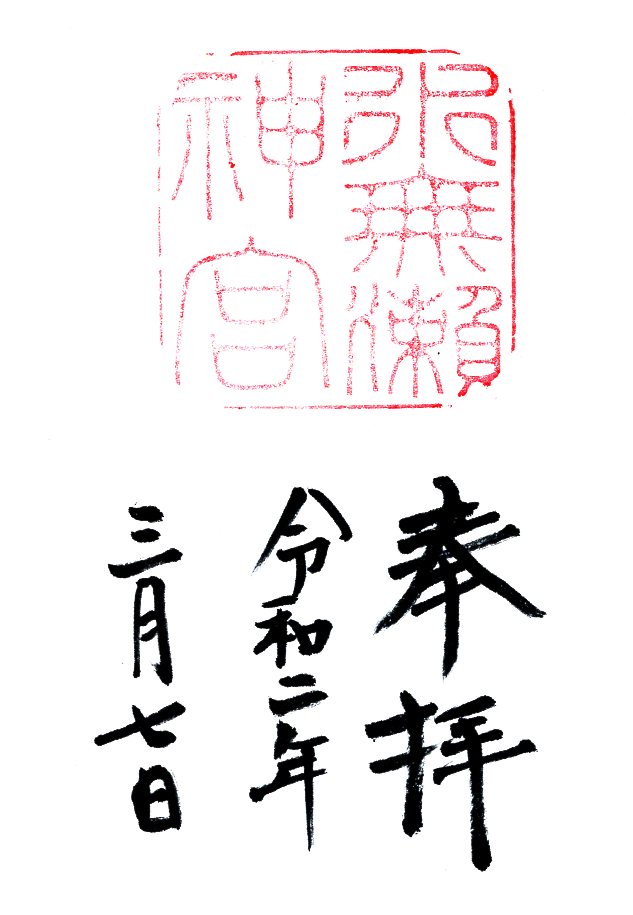 水無瀬
神宮
奉拝
令和二年
三月七日